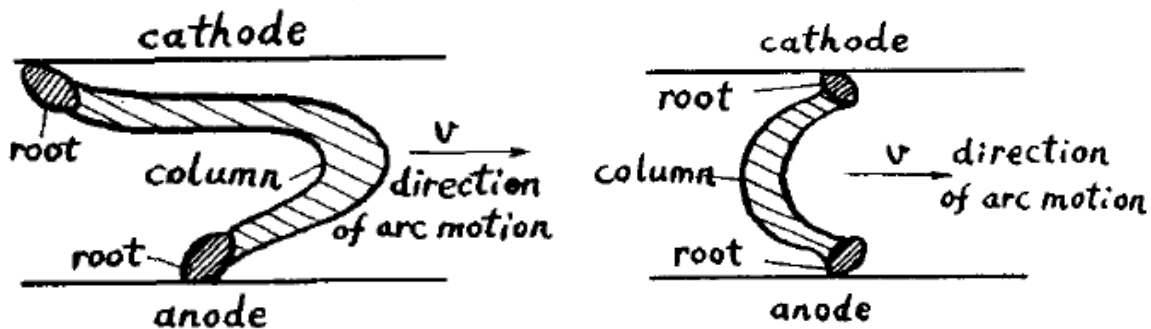 cathode
root
column
v
direction
of arc motion
root
anode
cathode
root
column
v
direction
of arc motion
root
anode